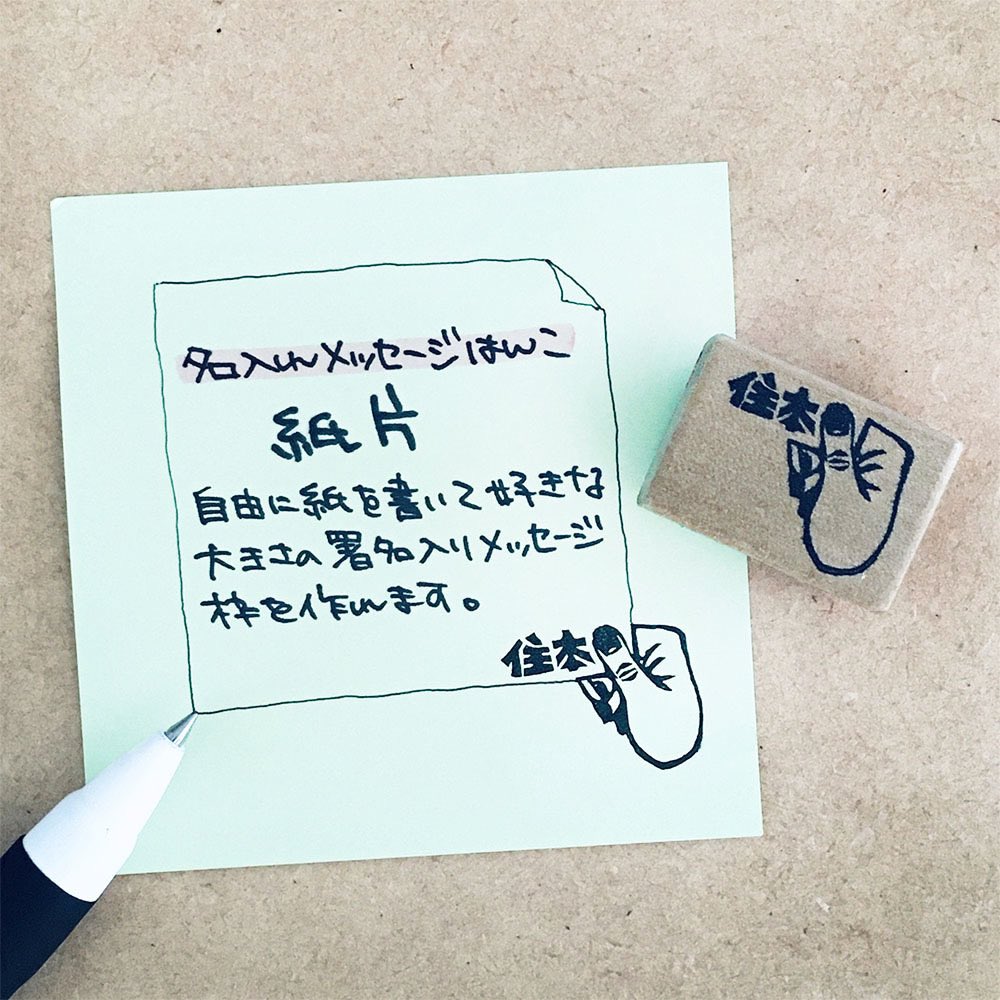 名入れメッセージはんこ
紙片
自由に紙を書いて好きな
大きさの署名入りメッセージ
枠を作れます。
住本
住本